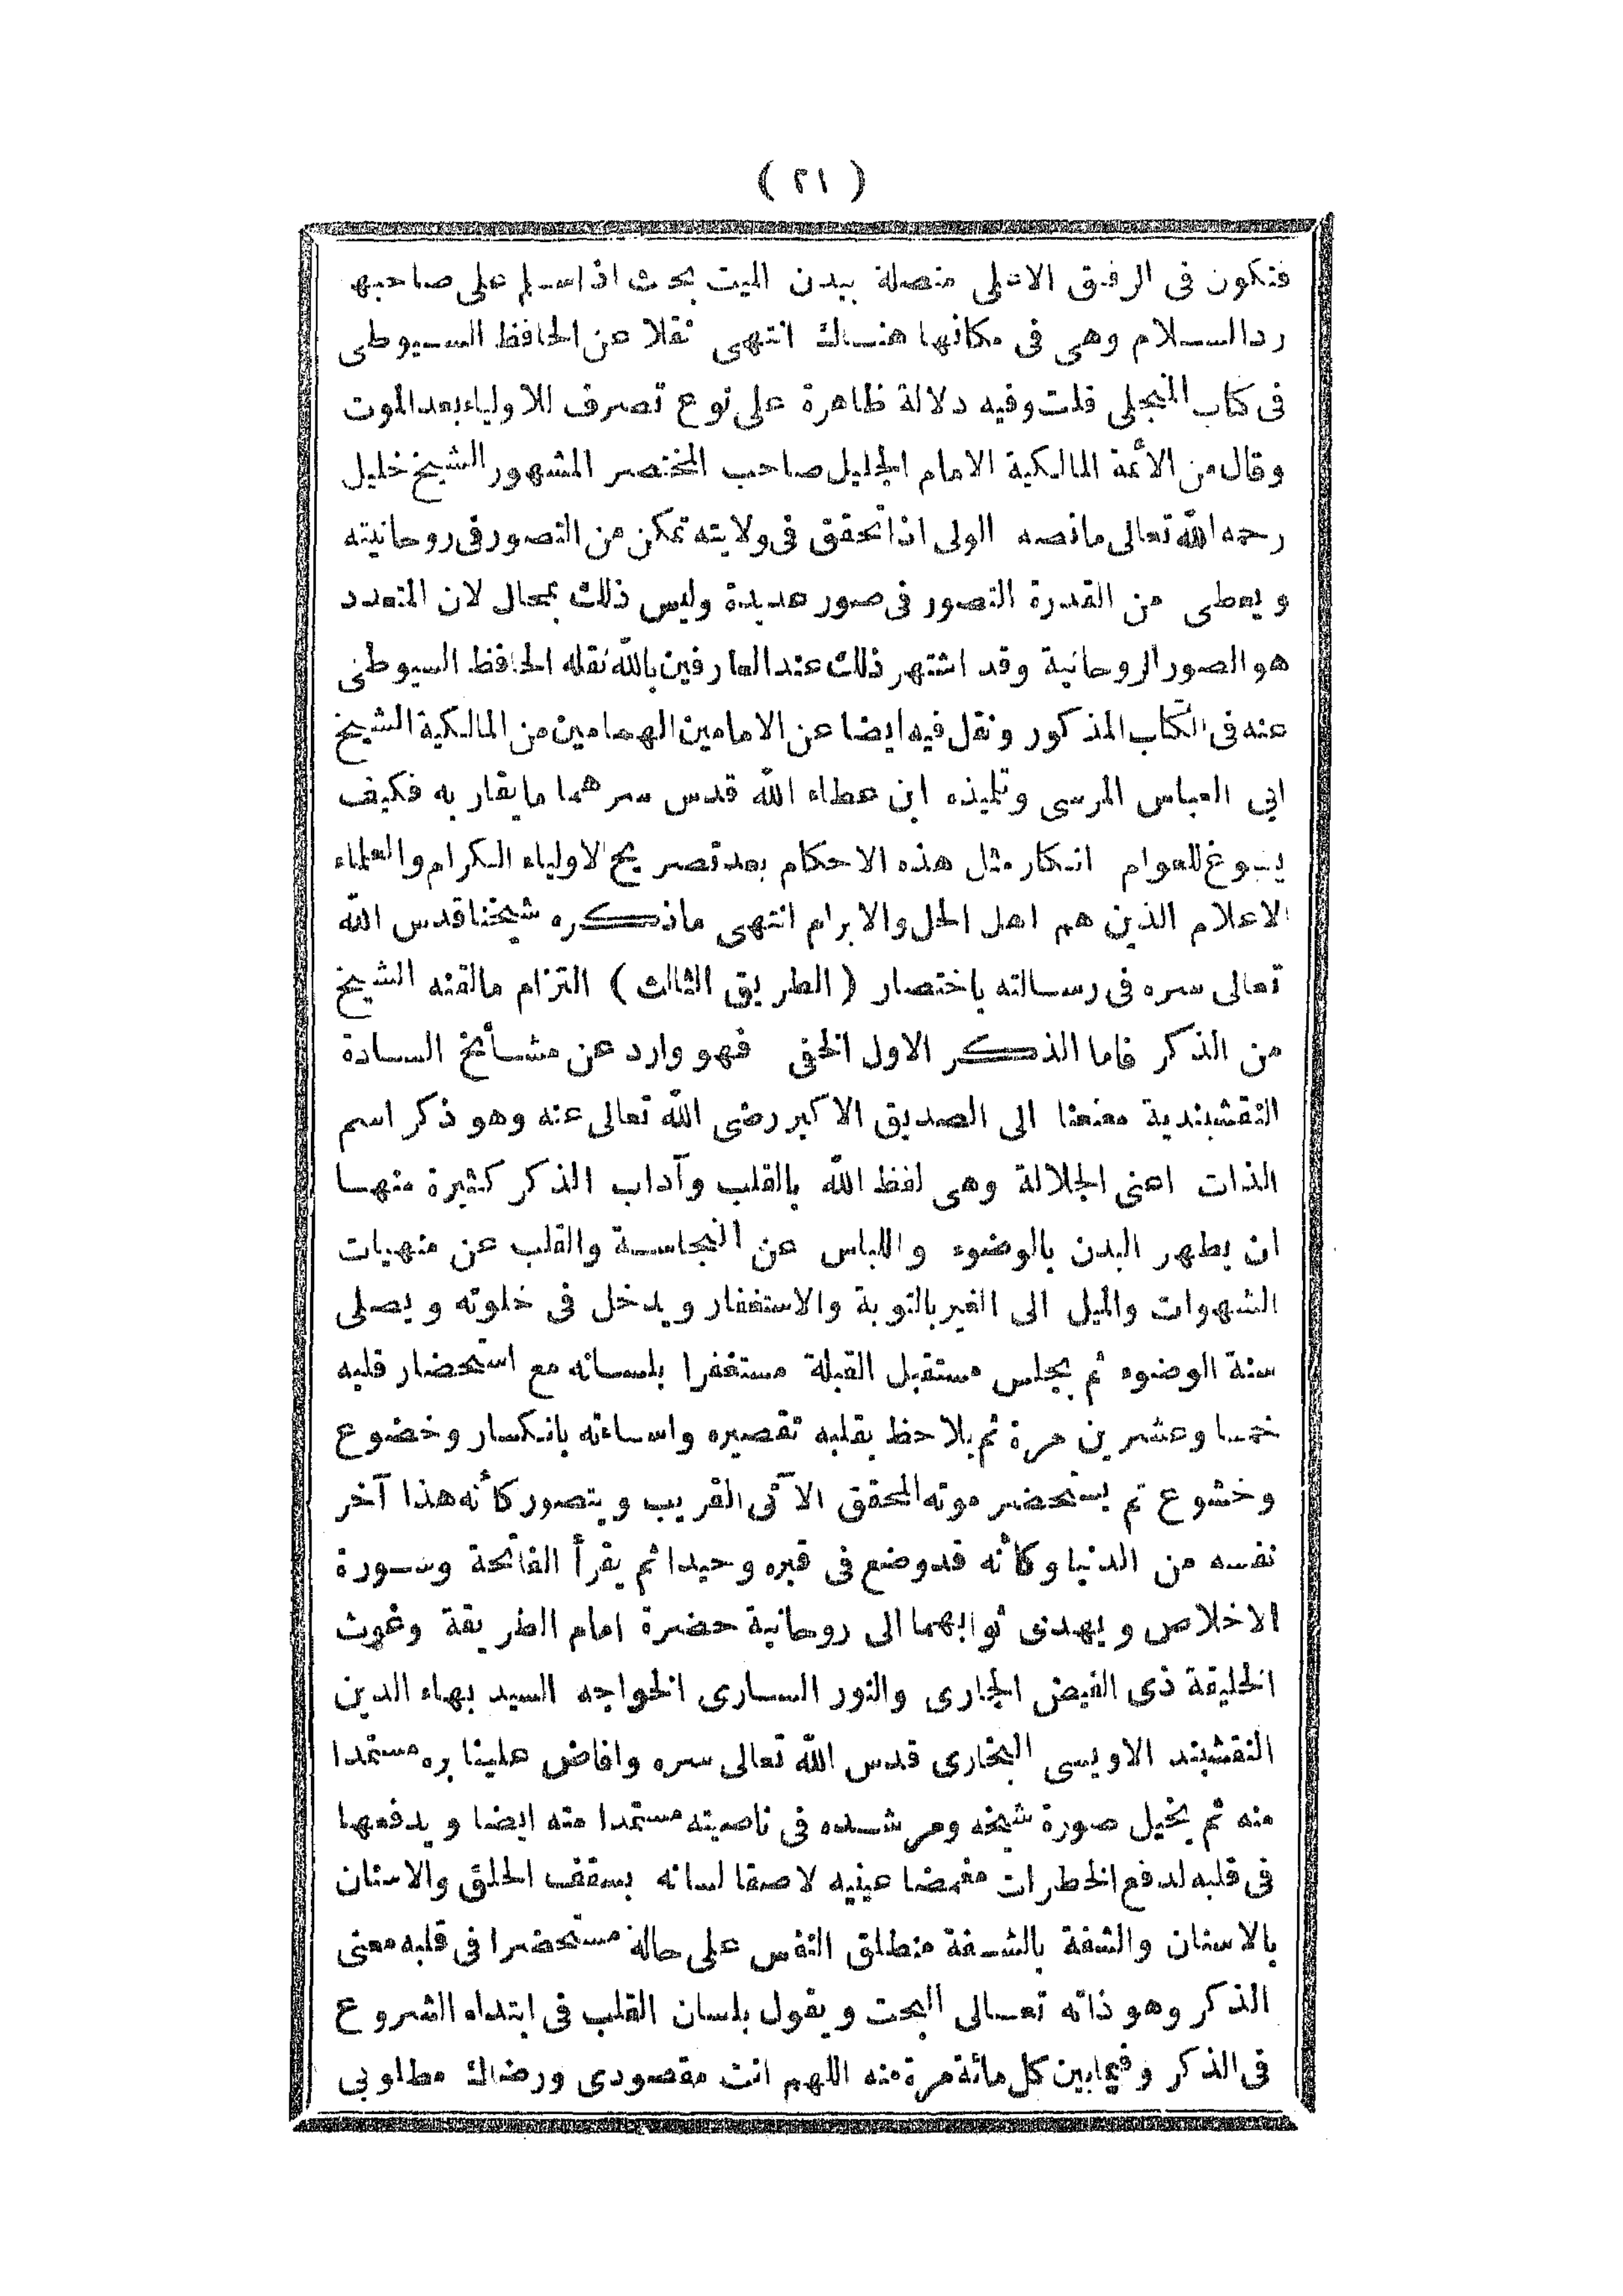 ( ٢١ )
فتكون فى الرفيق الاعلى متصلة ببدن الميت بحيث اذا سلم على صاحبها
رد السلام وهى فى مكانها هناك انتهى نقلا عن الحافظ السيوطى
فى كتاب المنجلى قلت وفيه دلالة ظاهرة على نوع تصرف للاولياء بعد الموت
وقال من الأئمة المالكية الامام الجليل صاحب المختصر المشهور الشيخ خليل
رحمه الله تعالى ما نصه الولى اذا تحقق فى ولايته تمكن من التصور فى روحانيته
ويعطى من القدرة التصور فى صور عديدة وليس ذلك بمحال لان المتعدد
هو الصور الروحانية وقد اشتهر ذلك عند العارفين بالله نقله الحافظ السيوطى
عنه فى الكتاب المذكور ونقل فيه ايضا عن الامامين الهمامين من المالكية الشيخ
ابى العباس المرسى وتلميذه ابن عطاء الله قدس سرهما ما يقاربه فكيف
يسوغ للعوام انكار مثل هذه الاحكام بعد تصريح الاولياء الكرام والعلماء
الاعلام الذين هم اهل الحل والابرام انتهى ما ذكره شيخنا قدس الله
تعالى سره فى رسالته باختصار ( الطريق الثالث ) التزام مالقنه الشيخ
من الذكر فاما الذكر الاول الخفى فهو وارد عن مشأيخ السادة
النقشبندية معنعنا الى الصديق الاكبر رضى الله تعالى عنه وهو ذكر اسم
الذات اعنى الجلالة وهى لفظ الله بالقلب وآداب الذكر كثيرة منها
ان يطهر البدن بالوضوء واللباس عن النجاسة والقلب عن منهيات
الشهوات والميل الى الغير بالتوبة والاستغفار ويدخل فى خلوته ويصلى
سنة الوضوء ثم يجلس مستقبل القبلة مستغفرا بلسانه مع استحضار قلبه
خمسا وعشرين مرة ثم يلاحظ بقلبه تقصيره واساءته بانكسار وخضوع
وخشوع ثم يستحضر موته المحقق الآتى القريب ويتصور كأنه هذا آخر
نفسه من الدنيا وكأنه قد وضع فى قبره وحيدا ثم يقرأ الفاتحة وسورة
الاخلاص ويهدى ثوابهما الى روحانية حضرة امام الطريقة وغوث
الخليقة ذى الفيض الجارى والنور السارى الخواجه السيد بهاء الدين
النقشبند الاويسى البخارى قدس الله تعالى سره وافاض علينا بره مستمدا
منه ثم يخيل صورة شيخه ومرشده فى ناصيته مستمدا منه ايضا ويدفعها
فى قلبه لدفع الخطرات مغمضا عينيه لاصقا لسانه بسقف الحلق والاسنان
بالاسنان والشفة بالشفة منطلق النفس على حاله مستحضرا فى قلبه معنى
الذكر وهو ذاته تعالى البحت ويقول بلسان القلب فى ابتداء الشروع
فى الذكر وفيما بين كل مائة مرة منه اللهم انت مقصودى ورضاك مطلوبى